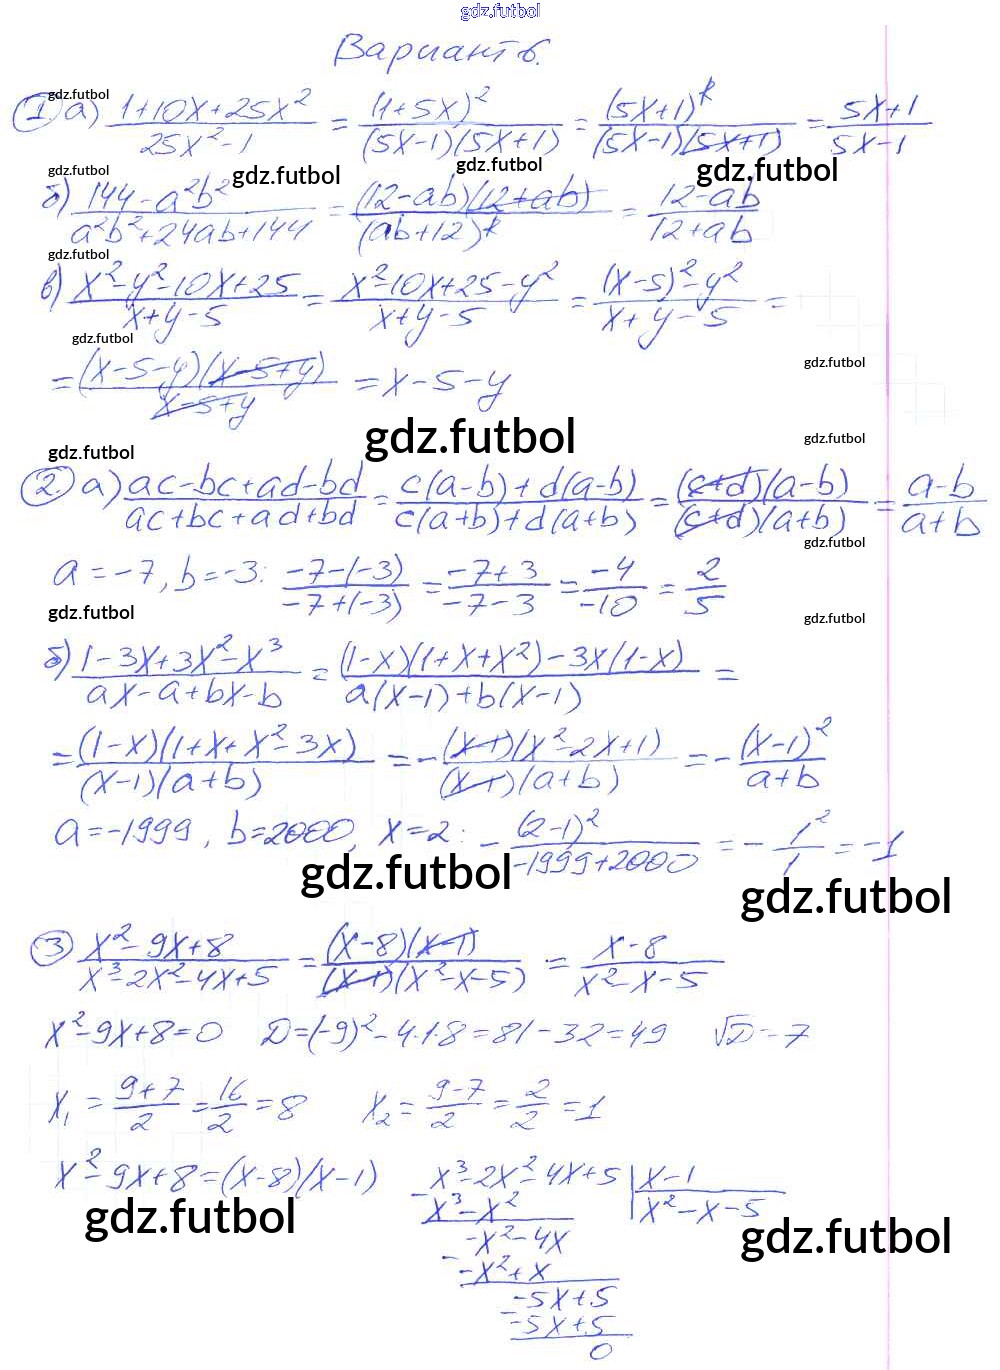 gdz.futbol
Вариант 6.
gdz.futbol
1. а) (1+10x+25x²)/(25x²-1) = (1+5x)²/((5x-1)(5x+1)) = (5x+1)²/((5x-1)(5x+1)) = (5x+1)/(5x-1)
gdz.futbol gdz.futbol gdz.futbol gdz.futbol
б) (144-a²b²)/(a²b²+24ab+144) = ((12-ab)(12+ab))/(ab+12)² = (12-ab)/(12+ab)
gdz.futbol
в) (x²-y²-10x+25)/(x+y-5) = (x²-10x+25-y²)/(x+y-5) = ((x-5)²-y²)/(x+y-5) =
gdz.futbol gdz.futbol
= ((x-5-y)(x-5+y))/(x-5+y) = x-5-y
gdz.futbol gdz.futbol gdz.futbol
2. а) (ac-bc+ad-bd)/(ac+bc+ad+bd) = (c(a-b)+d(a-b))/(c(a+b)+d(a+b)) = ((c+d)(a-b))/((c+d)(a+b)) = (a-b)/(a+b)
gdz.futbol
a=-7, b=-3: (-7-(-3))/(-7+(-3)) = (-7+3)/(-7-3) = (-4)/(-10) = 2/5
gdz.futbol gdz.futbol
б) (1-3x+3x²-x³)/(ax-a+bx-b) = ((1-x)(1+x+x²)-3x(1-x))/(a(x-1)+b(x-1)) =
= ((1-x)(1+x+x²-3x))/((x-1)(a+b)) = -((x-1)(x²-2x+1))/((x-1)(a+b)) = -(x-1)²/(a+b)
a=-1999, b=2000, x=2: -(2-1)²/(-1999+2000) = -1²/1 = -1
gdz.futbol gdz.futbol
3 (x²-9x+8)/(x³-2x²-4x+5) = ((x-8)(x-1))/((x-1)(x²-x-5)) = (x-8)/(x²-x-5)
x²-9x+8=0 D=(-9)²-4·1·8=81-32=49 √D=7
x₁=(9+7)/2=16/2=8 x₂=(9-7)/2=2/2=1
x²-9x+8=(x-8)(x-1) x³-2x²-4x+5 | x-1
gdz.futbol - x³-x² | x²-x-5 gdz.futbol
-x²-4x
- -x²+x
-5x+5
- -5x+5
0